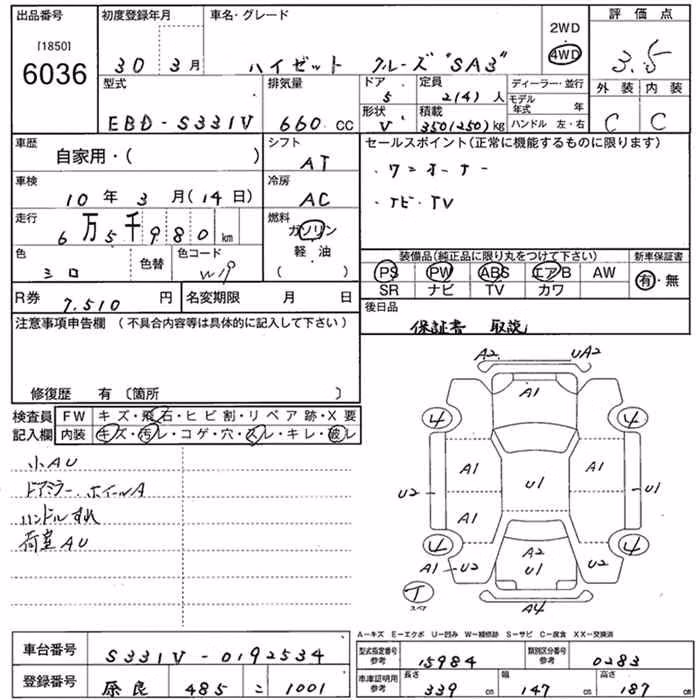 出品番号 初度登録年月 車名・グレード 2WD 評価点
[1850] 6036 30 3月 ハイゼット クルーズ "SA3" 4WD 3.5
型式 排気量 ドア 5 定員 2(4)人 ディーラー・並行 外装 内装
EBD-S331V 660cc 形状 V 積載 350(250)kg モデル年式 年 ハンドル 左・右 C C
車歴 自家用・( ) シフト AT セールスポイント(正常に機能するものに限ります)
車検 10年3月(14日) 冷房 AC ・ワンオーナー
走行 6万5千980km 燃料 ガソリン ・ナビ・TV
色 シロ 色替 色コード W19 軽油 ( )
装備品(純正品に限り丸をつけて下さい) 新車保証書
PS PW ABS エアB AW 有・無
SR ナビ TV カワ
R券 7,510円 名変期限 月 日 後日品
保証書 取説
注意事項申告欄 (不具合内容等は具体的に記入して下さい)
修復歴 有〔箇所 〕
検査員 FW キズ・飛石・ヒビ割・リペア跡・X要
記入欄 内装 キズ・汚レ・コゲ・穴・スレ・キレ・破レ
小AU
ドアミラー.ホイールA
ハンドルすれ
荷室AU
A2 UA2
A1
4 4
A1 A1
U2 U1 U1
A1
4 4
A2
A1 U2 U1 U2
T スペア A4
A-キズ E-エクボ U-凹み W-補修跡 S-サビ C-腐食 XX-交換済
車台番号 S331V-0192534 型式指定番号 参考 15984 類別区分番号 参考 0283
登録番号 485 こ 1001 車庫証明用 参考 長さ 339cm 幅 147cm 高さ 187cm